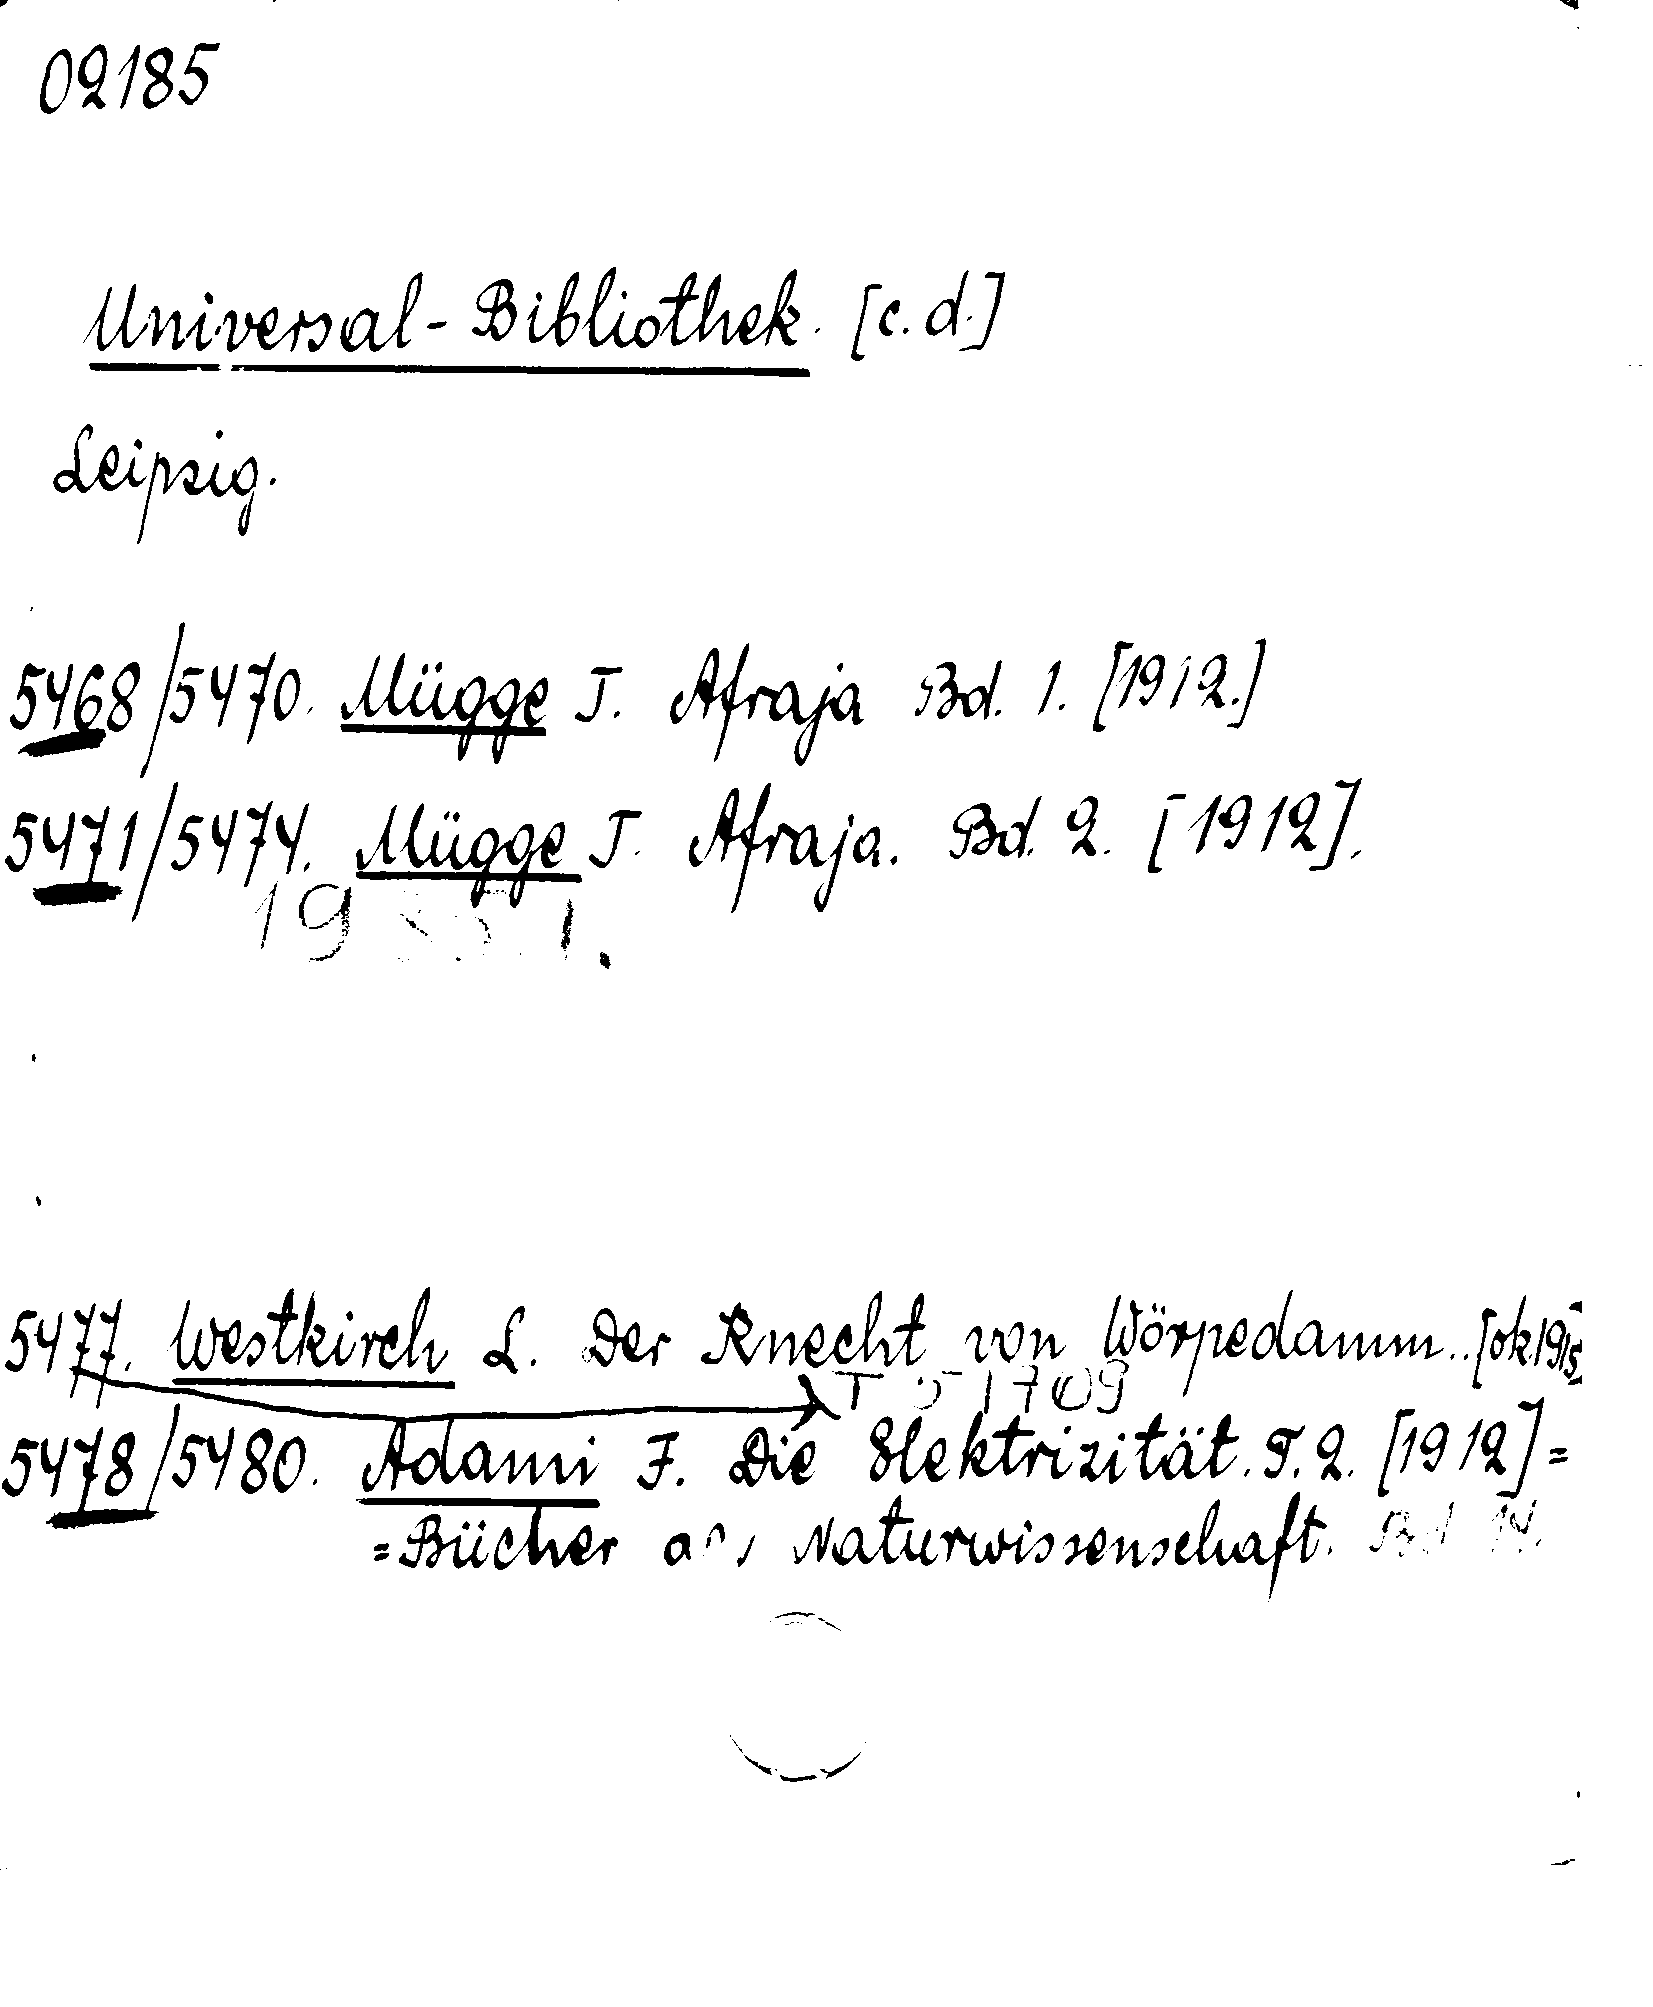 02185
Universal-Bibliothek. [c.d.]
Leipzig.
5468/5470. Mügge T. Afraja Bd. 1. [1912.]
5471/5474. Mügge T. Afraja. Bd. 2. [1912].
5477. Westkirch L. Der Knecht von Wörpedamm.. [ok.1915]
5478/5480. Adami F. Die Elektrizität. T. 2. [1912] =
=Bücher Naturwissenschaft. Bd 14.